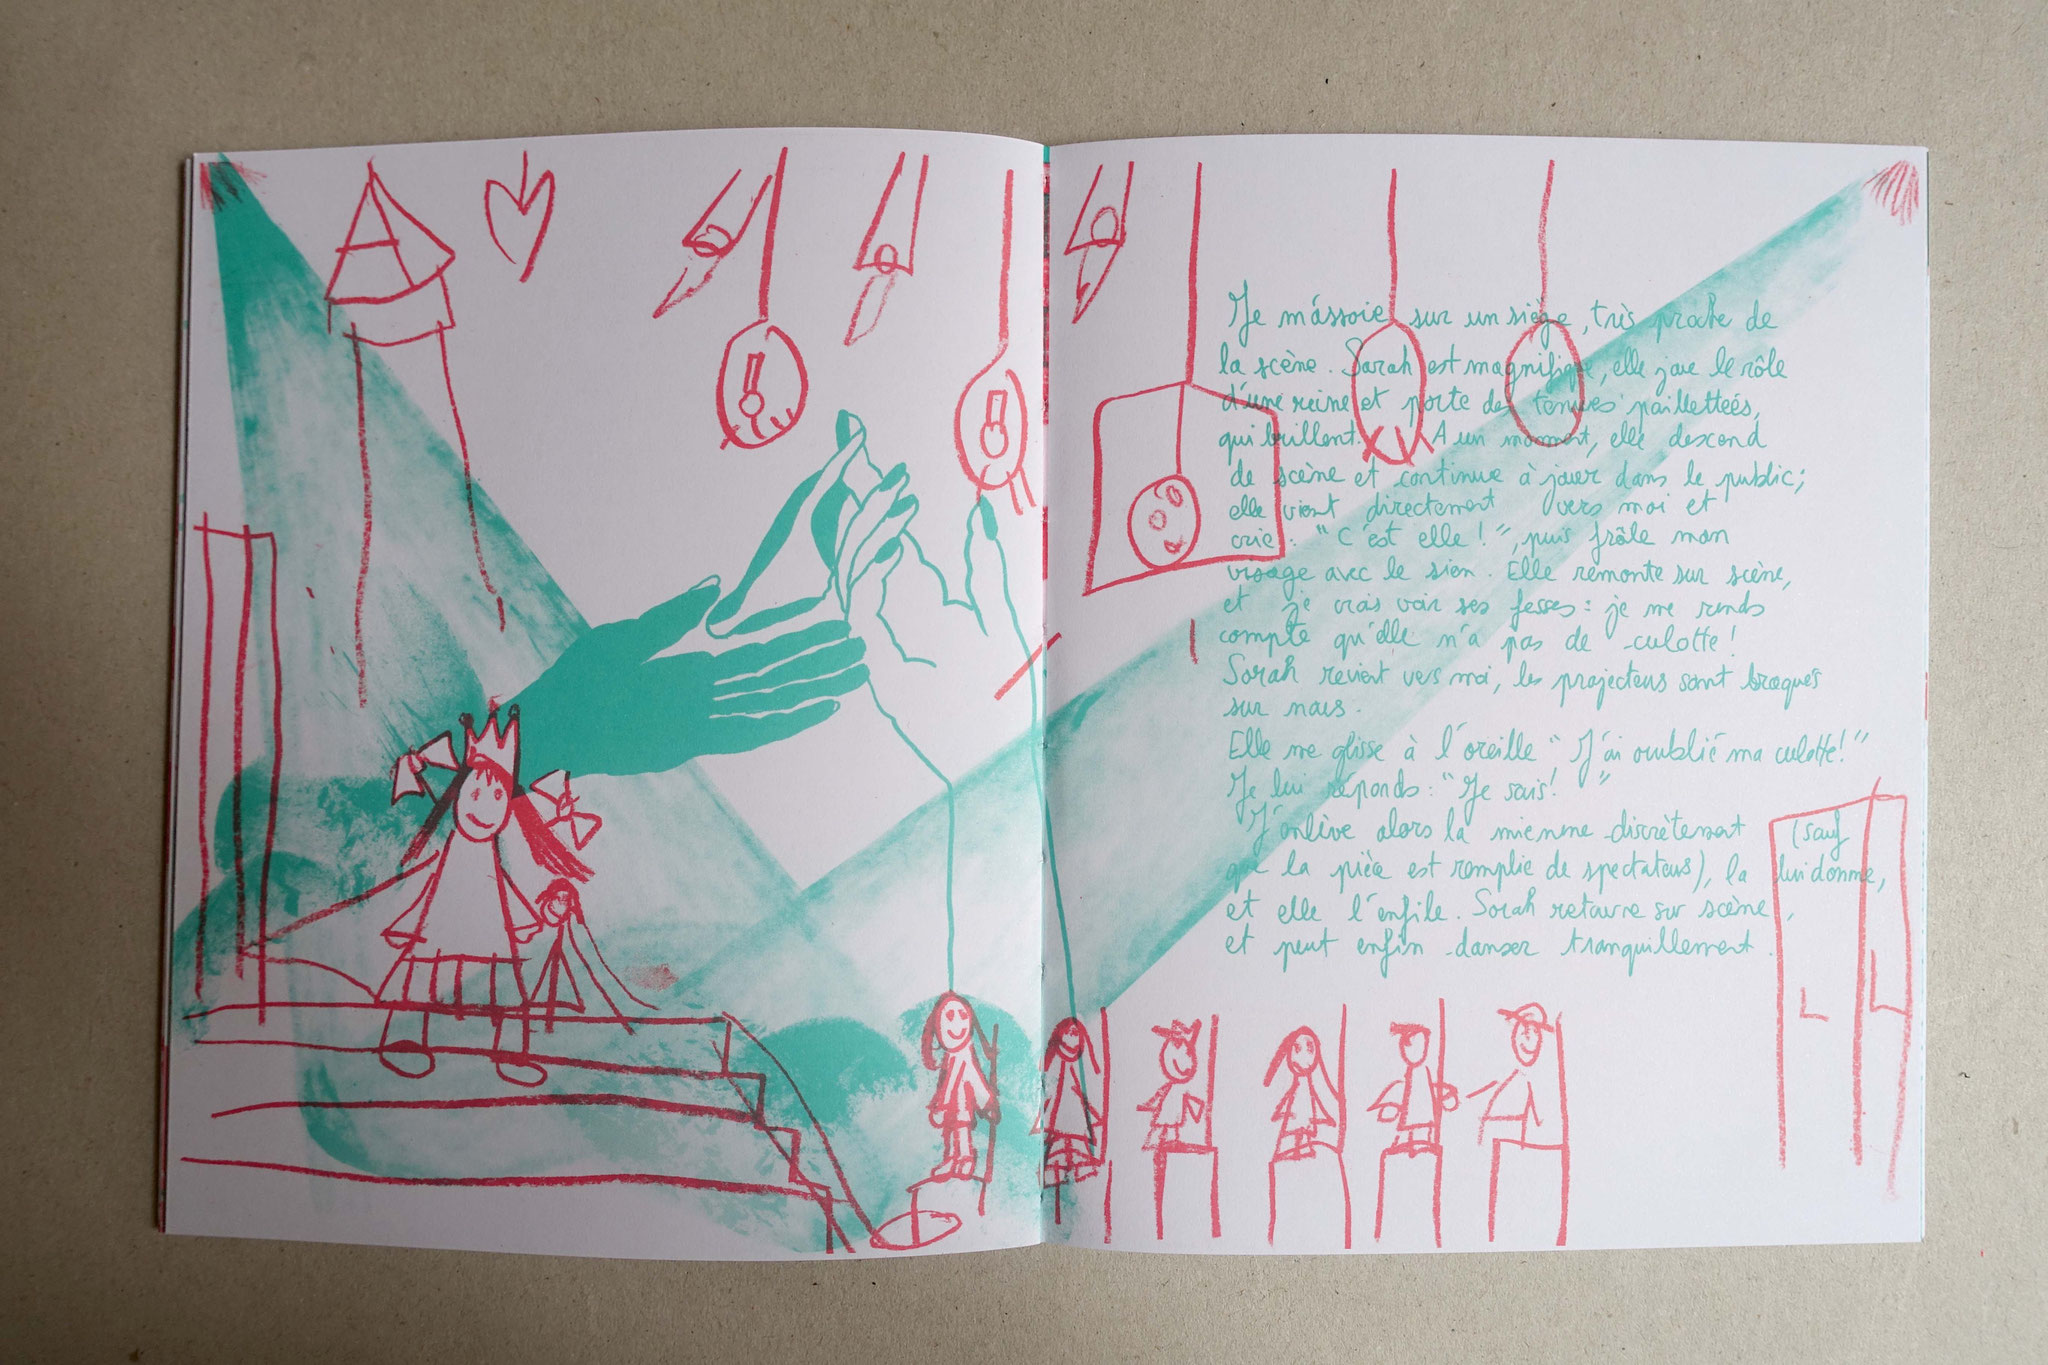 Je m'assoie sur un siège, très proche de
la scène. Sarah est magnifique, elle joue le rôle
d'une reine et porte des tenues pailletteés,
qui brillent. A un moment, elle descend
de scène et continue à jouer dans le public;
elle vient directement vers moi et
crie : "C'est elle !", puis frôle mon
visage avec le sien. Elle remonte sur scène,
et je crois voir ses fesses : je me rends
compte qu'elle n'a pas de culotte !
Sarah revient vers moi, les projecteurs sont braqués
sur nous.
Elle me glisse à l'oreille "J'ai oublié ma culotte!"
Je lui réponds : "Je sais! "
J'enlève alors la mienne discrètement (sauf
que la pièce est remplie de spectateurs), la lui donne,
et elle l'enfile. Sarah retourne sur scène,
et peut enfin danser tranquillement.